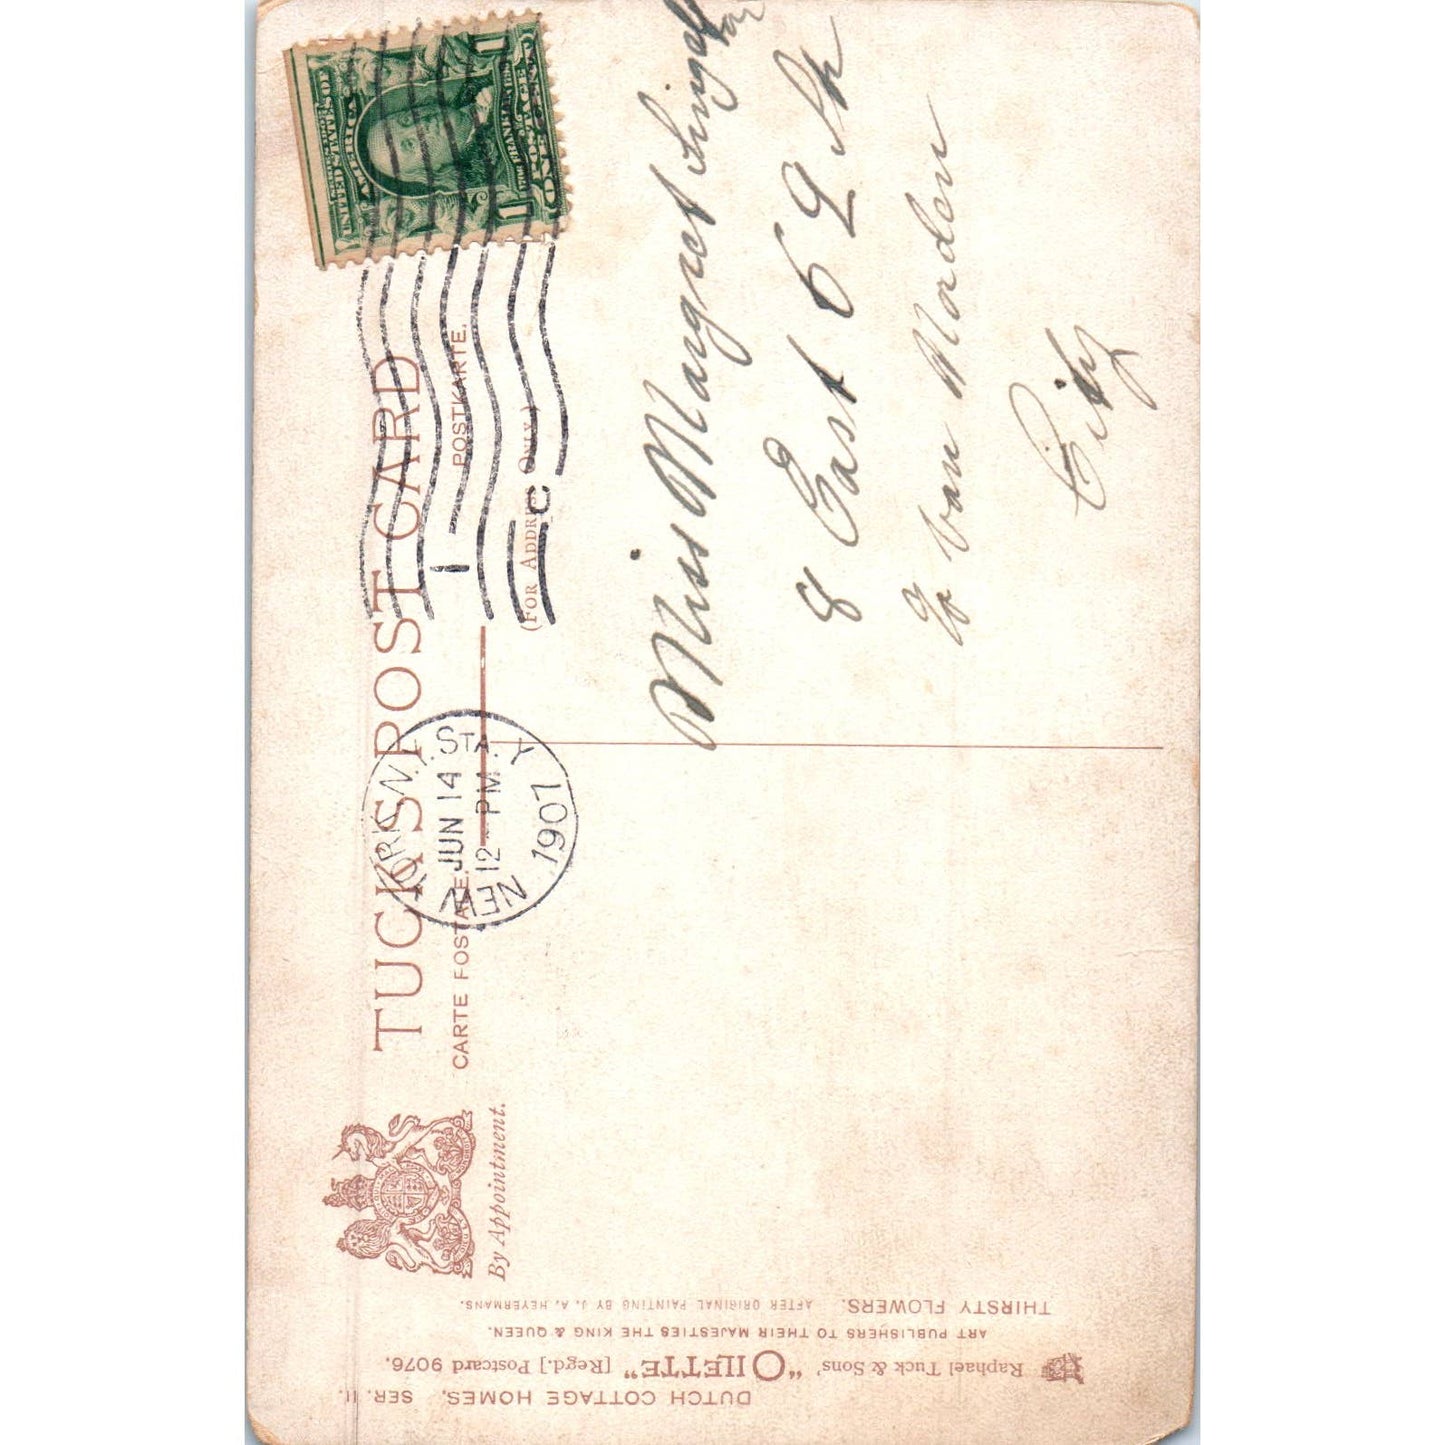 TUCK'S POST CARD
CARTE POSTALE.
POSTKARTE.
(FOR ADDRESS ONLY.)
By Appointment.
NEW YORK, N.Y. STA. Y
JUN 14
12 - PM
1907
1 C
Miss Margret
8 East 69 St
c/o Van Norden
City
DUTCH COTTAGE HOMES. SER. II.
Raphael Tuck & Sons' "OILETTE" [Regd.] Postcard 9076.
ART PUBLISHERS TO THEIR MAJESTIES THE KING & QUEEN.
THIRSTY FLOWERS. AFTER ORIGINAL PAINTING BY J. A. HEYERMANS.